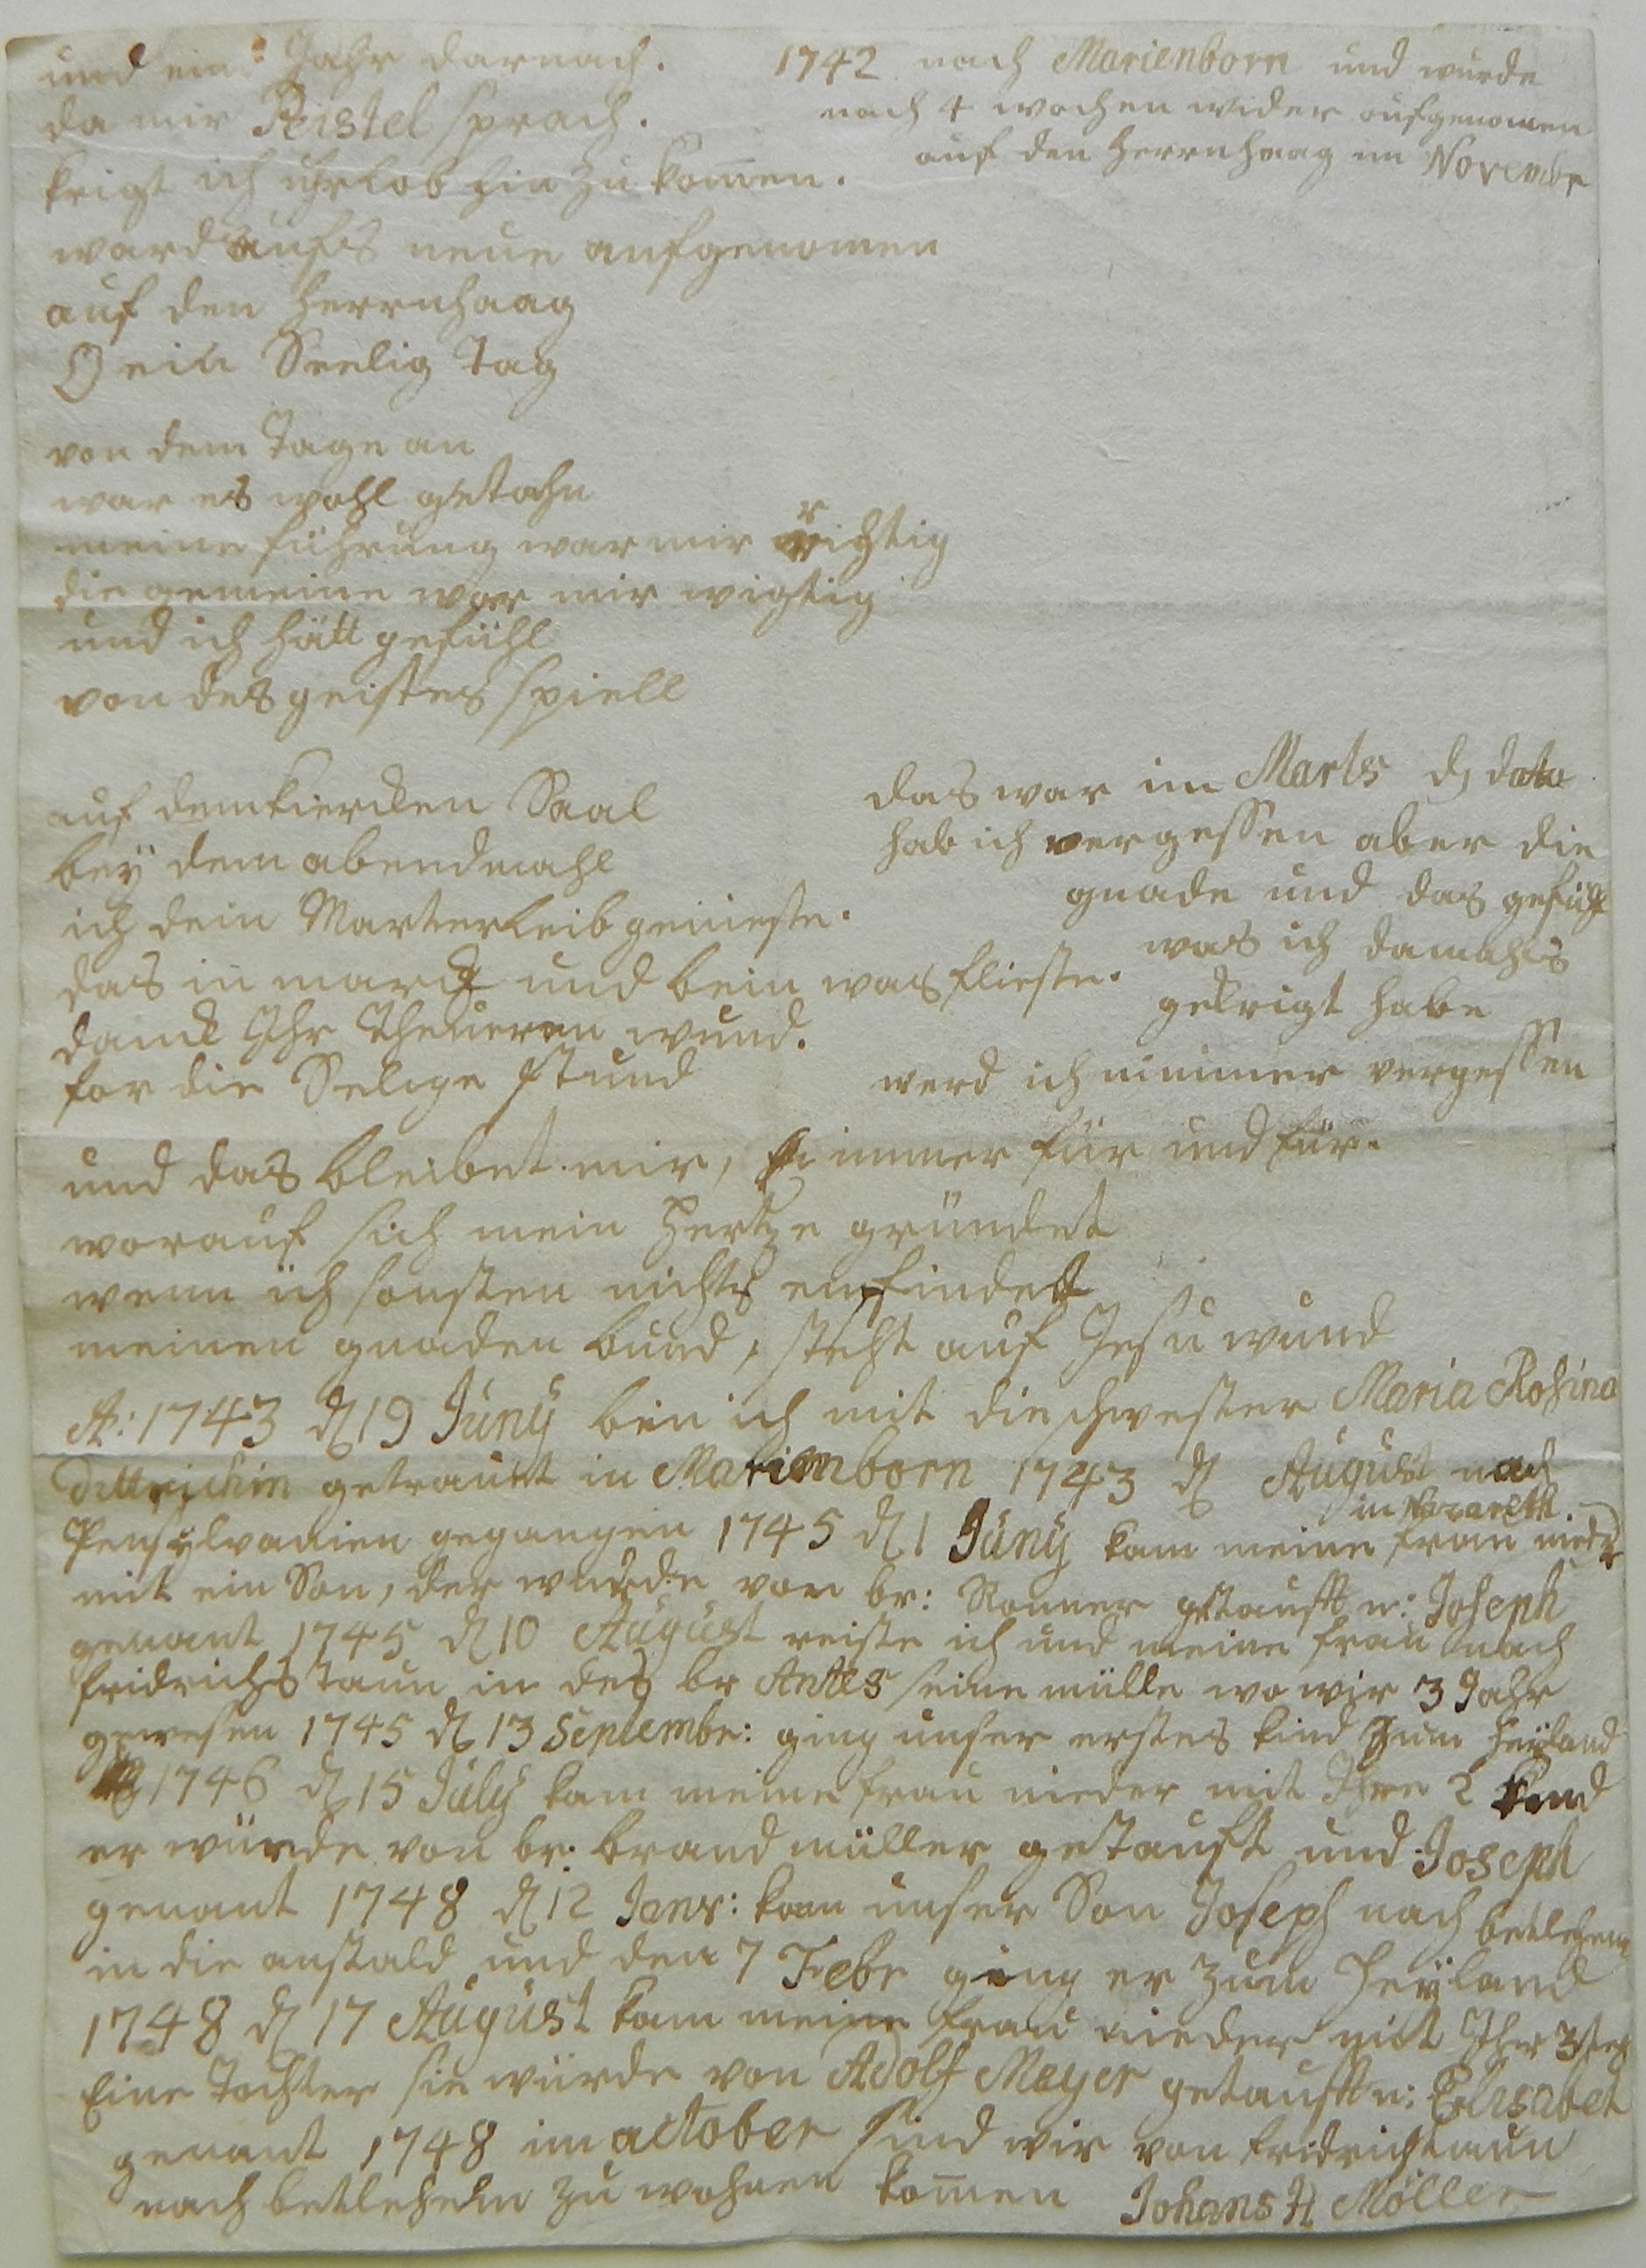 und ein Jahr darnach.
da mir Reistel sprach.
krigt ich uhrlob hin zu kom̄en.
ward aufs neue aufgenomen
auf den Herrnhaag
O ein Seelig Tag
1742 nach Marienborn und wurde
nach 4 wochen wider aufgenomen
auf den Herrnhaag im Novembr
von dem Tage an
war es wohl getahn
meine führung war mir richtig
die gemeine war mir wigtig
und ich hätt gefühl
von des geistes spiell
auf dem kiercken Saal
beÿ dem abendmahl
ich dein Marter Leib genieste.
das in marck und bein was flieste.
danck Ihr Theueren wund.
for die Selige stund
das war im Marts d data
hab ich vergessen aber die
gnade und das gefühl
was ich damahls
gekrigt habe
werd ich nimmer vergessen
und das bleibet mir, immer für und für.
worauf sich mein Hertze gründet
wenn ich sonsten nichts enpfindet
meinen gnaden bund, steht auf Jesu wund
A: 1743 d 19 Junÿ ben ich mit die schwester Maria Rosina
Dittrichin getrauet in Marienborn 1743 d August nach
Pensylvanien gegangen 1745 d 1 Junÿ kam meine frau niedr
in Nazareth.
mit ein Son, der wurde von br: Ronner getaufft u: Joseph
genant 1745 d 10 August reiste ich und meine frau nach
fridrichstaun in des br Antes seine mülle wo wir 3 Jahr
gewesen 1745 d 13 Septembr: ging unser erstes kind zum heÿland
1746 d 15 Julÿ kam meine frau nieder mit Ihre 2 kind
er würde von br: brandmüller getauft und Joseph
genant 1748 d 12 Janr: kam unser Son Joseph nach betlehem
in die anstald und den 7 Febr ging er zum Heÿland
1748 d 17 August kam meine frau nieder mit Ihr 3ten
Eine Tochter sie würde von Adolf Meyer getaufft u: Elisabet
genant 1748 im october sind wir von fridrichstaun
nach betlehem zu wohnen kom̄en Johans H Möller